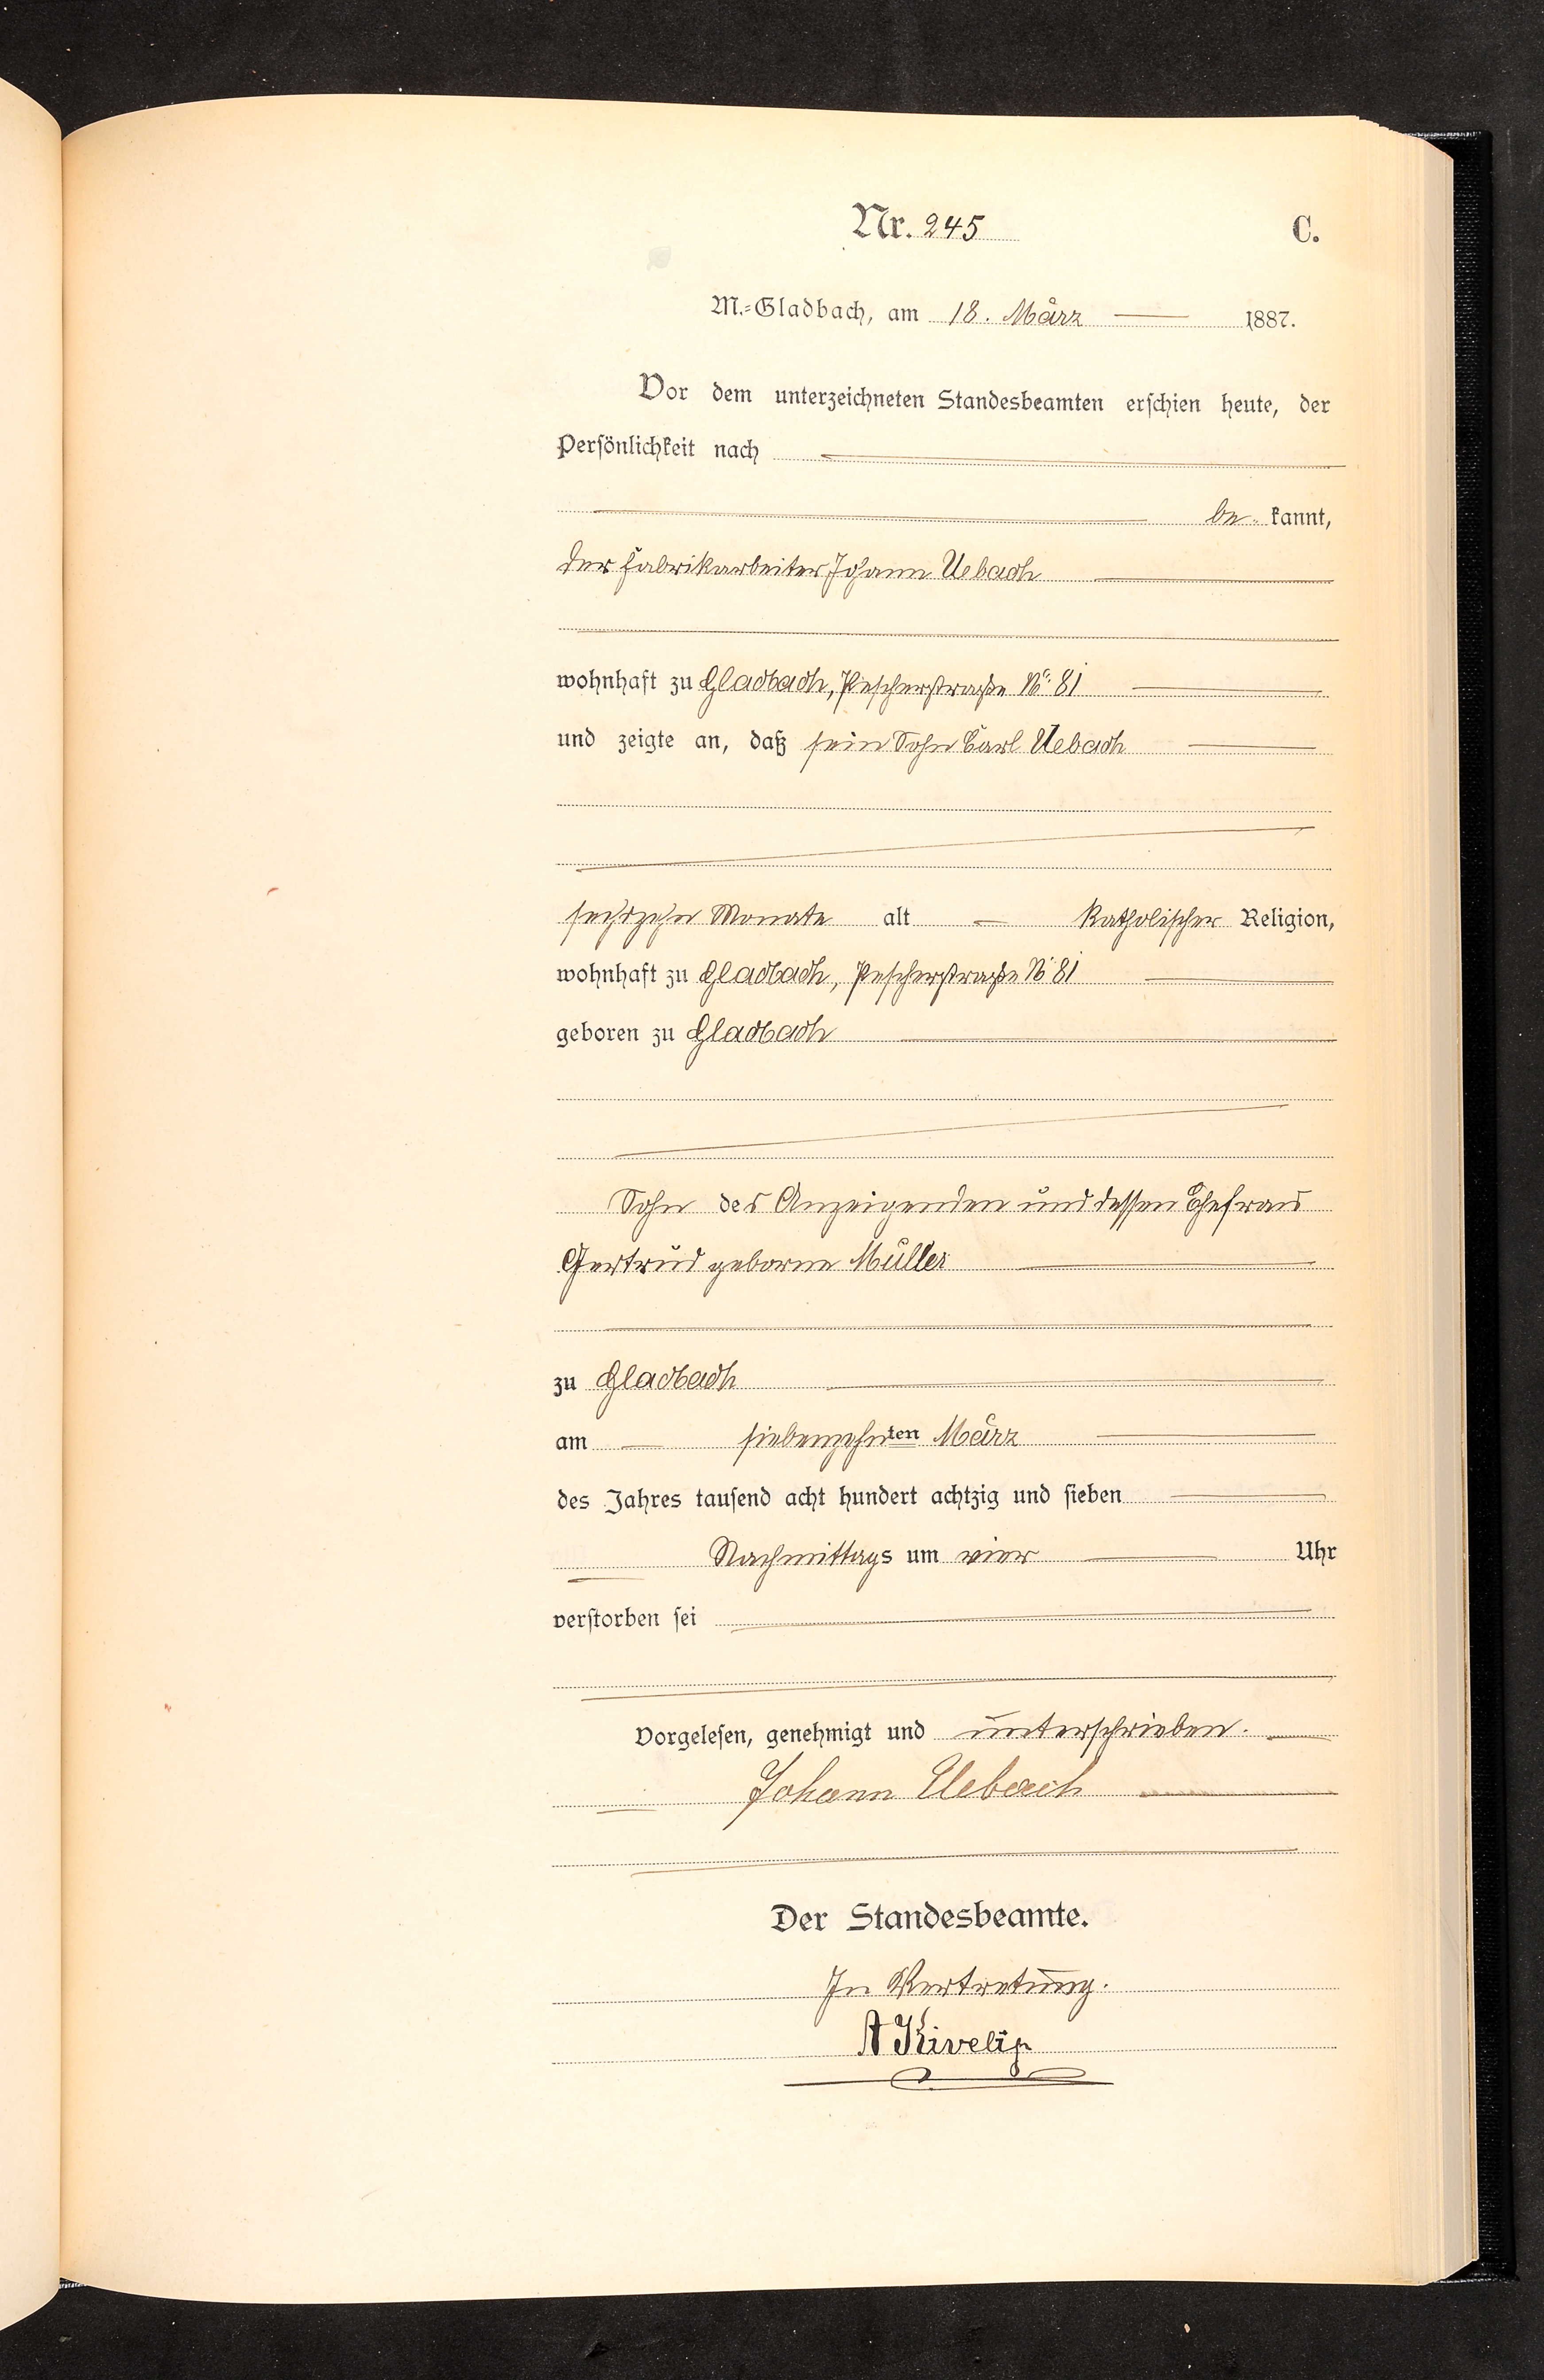 Nr. 245
C.
M.=Gladbach, am 18. März 1887.
Vor dem unterzeichneten Standesbeamten erschien heute, der
Persönlichkeit nach
be kannt,
der Fabrikarbeiter Johann Uebach
wohnhaft zu Gladbach, Pescherstraße No. 81
und zeigte an, daß sein Sohn Carl Uebach
sechszehn Monate alt katholischer Religion,
wohnhaft zu Gladbach, Pescherstraße No 81
geboren zu Gladbach
Sohn des Anzeigenden und dessen Ehefrau
Gertrud geborne Müller
zu Gladbach
am siebenzehnten März
des Jahres tausend acht hundert achtzig und sieben
Nachmittags um vier Uhr
verstorben sei
Vorgelesen, genehmigt und unterschrieben.
Johann Uebach
Der Standesbeamte.
In Vertretung.
A Kivelip